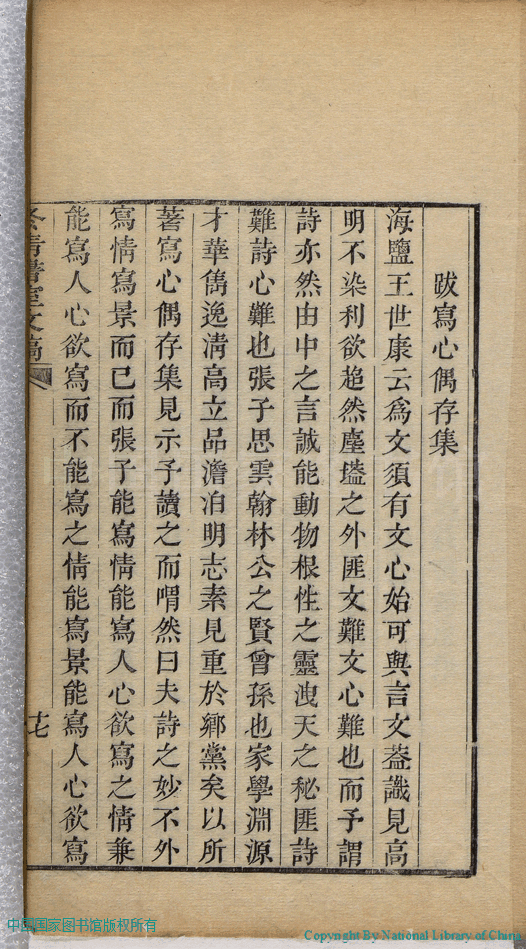 跋寫心偶存集
海鹽王世康云爲文須有文心始可與言文葢識見高
明不染利欲超然塵壒之外匪文難文心難也而予謂
詩亦然由中之言誠能動物根性之靈洩天之秘匪詩
難詩心難也張子思雲翰林公之賢曾孫也家學淵源
才華雋逸淸高立品澹泊明志素見重於鄉黨矣以所
著寫心偶存集見示予讀之而喟然曰夫詩之妙不外
寫情寫景而已而張子能寫情能寫人心欲寫之情兼
能寫人心欲寫而不能寫之情能寫景能寫人心欲寫
文稿
十七
中国国家图书馆版权所有
Copyright By National Library of China